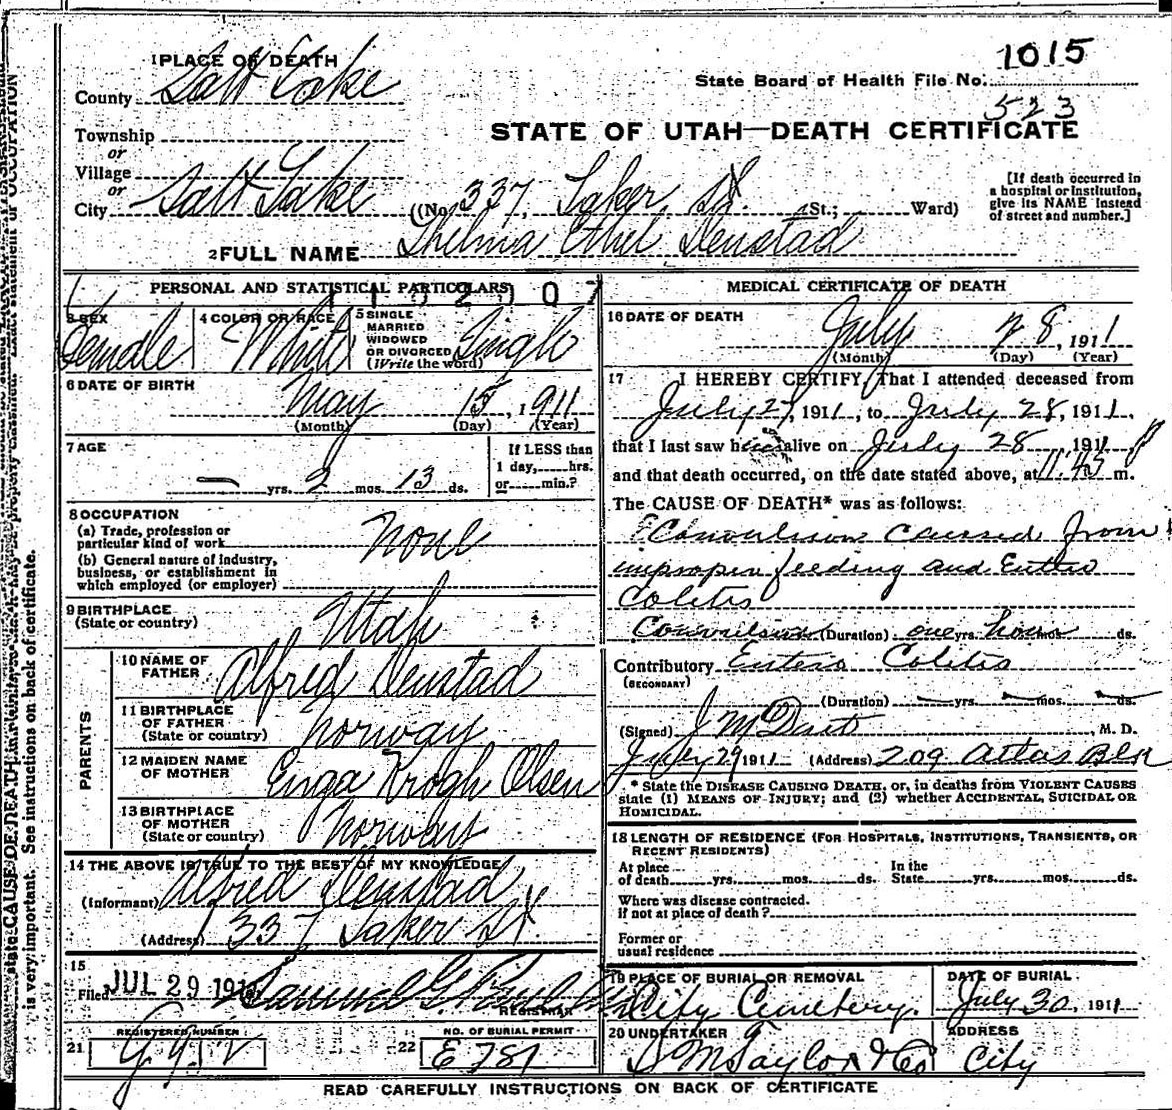 1 PLACE OF DEATH
County Salt Lake
Township
or
Village
or
City Salt Lake
State Board of Health File No. 1015
523
STATE OF UTAH—DEATH CERTIFICATE
(No. 337, Laker St. St.; Ward)
[If death occurred in
a hospital or institution,
give its NAME instead
of street and number.]
2 FULL NAME Thelma Ethel Denstad
PERSONAL AND STATISTICAL PARTICULARS
3 SEX Female
4 COLOR OR RACE White
5 SINGLE
MARRIED
WIDOWED
OR DIVORCED
(Write the word) Single
6 DATE OF BIRTH
May 15, 1911
(Month) (Day) (Year)
7 AGE
— yrs. 2 mos. 13 ds.
If LESS than
1 day, hrs.
or min.?
8 OCCUPATION
(a) Trade, profession or
particular kind of work None
(b) General nature of industry,
business, or establishment in
which employed (or employer)
9 BIRTHPLACE
(State or country) Utah
PARENTS
10 NAME OF
FATHER Alfred Denstad
11 BIRTHPLACE
OF FATHER
(State or country) Norway
12 MAIDEN NAME
OF MOTHER Einga Krogh Olsen
13 BIRTHPLACE
OF MOTHER
(State or country) Norway
14 THE ABOVE IS TRUE TO THE BEST OF MY KNOWLEDGE
(Informant) Alfred Denstad
(Address) 337 Laker St.
15
Filed JUL 29 191 Samuel G.
REGISTRAR
REGISTERED NUMBER
21
NO. OF BURIAL PERMIT
22 E 781
MEDICAL CERTIFICATE OF DEATH
16 DATE OF DEATH
July 28, 1911
(Month) (Day) (Year)
17 I HEREBY CERTIFY, That I attended deceased from
July 27, 1911, to July 28, 1911,
that I last saw her alive on July 28 1911
and that death occurred, on the date stated above, at 11.45 P m.
The CAUSE OF DEATH* was as follows:
Convulsions caused from
improper feeding and Entero
Colitis
Convulsions (Duration) one yrs. hour mos. ds.
Contributory Entero Colitis
(SECONDARY)
(Duration) — yrs. — mos. — ds.
(Signed) J M , M. D.
July 29 1911 (Address) 209 Atlas Blk
* State the DISEASE CAUSING DEATH, or, in deaths from VIOLENT CAUSES
state (1) MEANS OF INJURY; and (2) whether ACCIDENTAL, SUICIDAL OR
HOMICIDAL.
18 LENGTH OF RESIDENCE (FOR HOSPITALS, INSTITUTIONS, TRANSIENTS, OR
RECENT RESIDENTS)
At place
of death yrs. mos. ds.
In the
State yrs. mos. ds.
Where was disease contracted.
if not at place of death?
Former or
usual residence
19 PLACE OF BURIAL OR REMOVAL
City Cemetery.
DATE OF BURIAL
July 30, 1911
20 UNDERTAKER
S M Taylor & Co
ADDRESS
City
READ CAREFULLY INSTRUCTIONS ON BACK OF CERTIFICATE
state CAUSE OF DEATH in plain terms, so that it may be properly classified. Exact statement of OCCUPATION
is very important. See instructions on back of certificate.